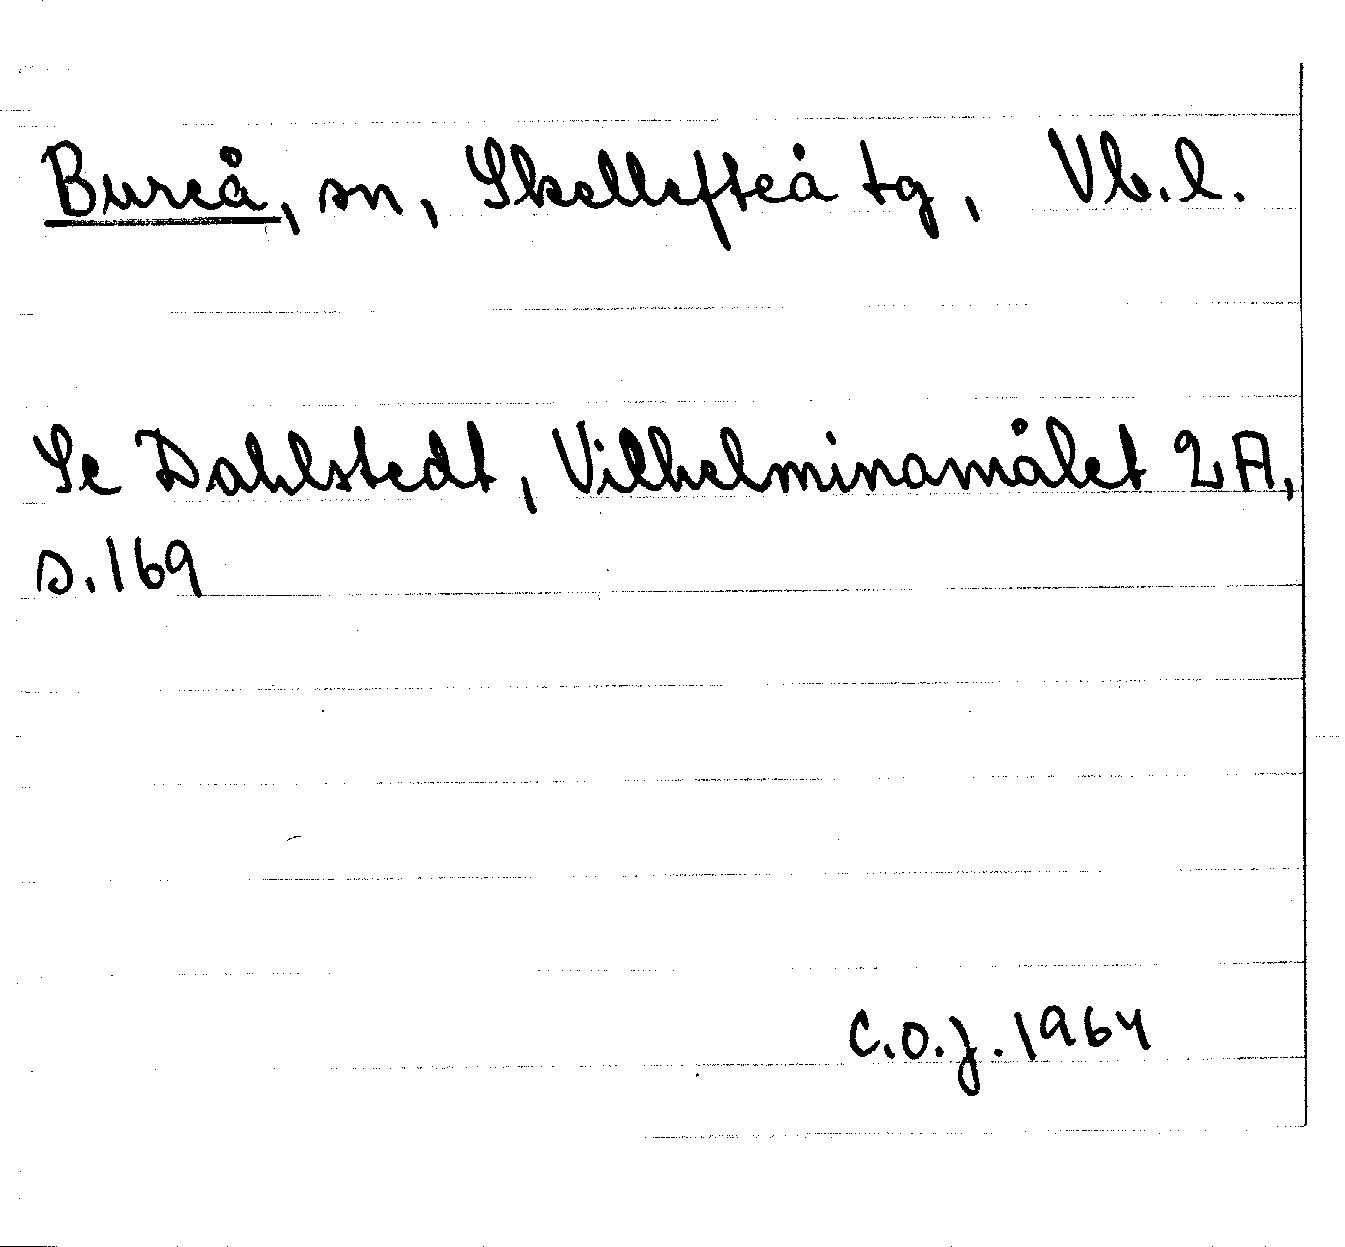 Bureå, sn, Skellefteå tg, Vb.l.
Se Dahlstedt, Vilhelminamålet 2A,
s. 169
C.O.J. 1964